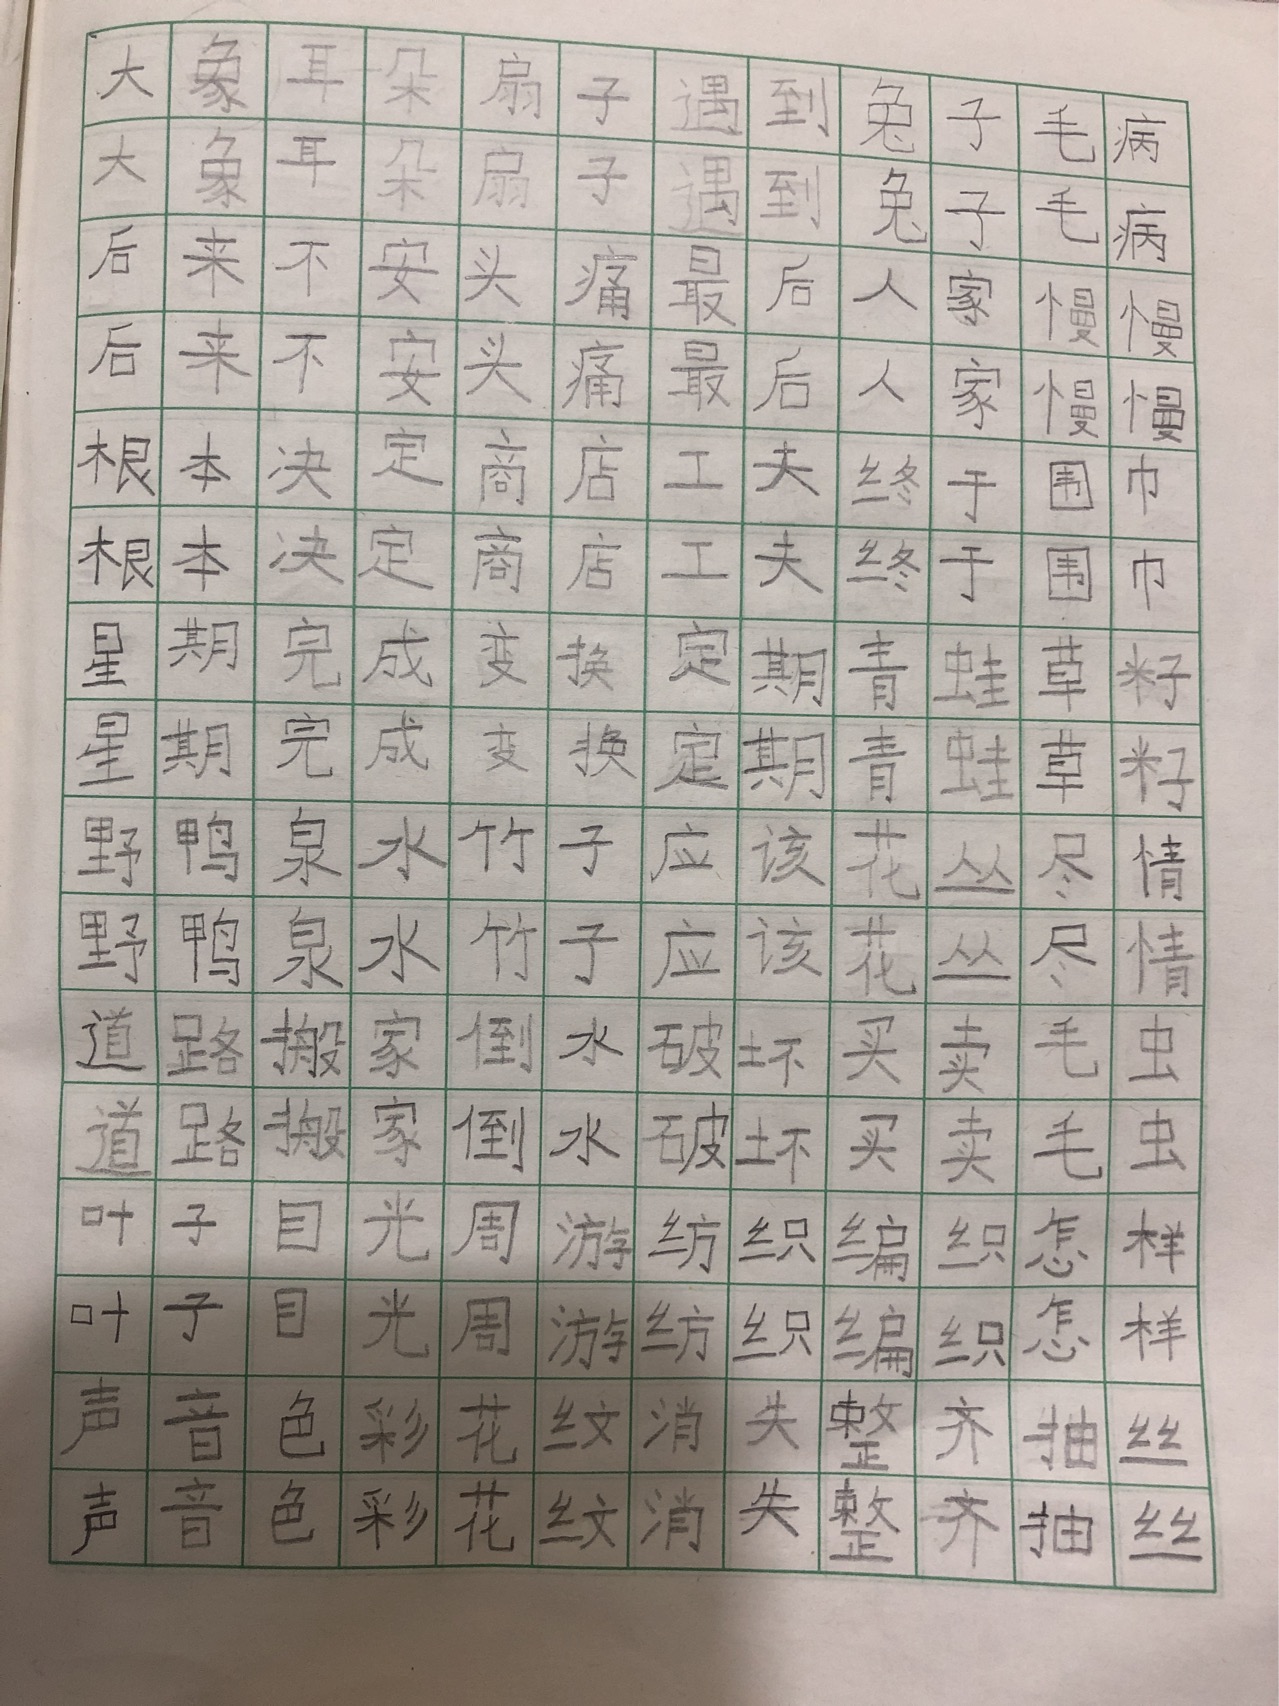 大象耳朵扇子遇到兔子毛病
大象耳朵扇子遇到兔子毛病
后来不安头痛最后人家慢慢
后来不安头痛最后人家慢慢
根本决定商店工夫终于围巾
根本决定商店工夫终于围巾
星期完成变换定期青蛙草籽
星期完成变换定期青蛙草籽
野鸭泉水竹子应该花丛尽情
野鸭泉水竹子应该花丛尽情
道路搬家倒水破坏买卖毛虫
道路搬家倒水破坏买卖毛虫
叶子目光周游纺织编织怎样
叶子目光周游纺织编织怎样
声音色彩花纹消失整齐抽丝
声音色彩花纹消失整齐抽丝